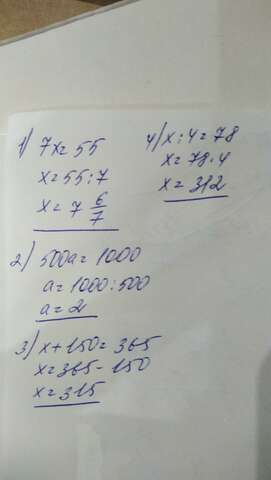 1) 7x=55
x=55:7
x=7 6/7
2) 500a=1000
a=1000:500
a=2
3) x+150=365
x=365-150
x=315
4) x:4=78
x=78·4
x=312